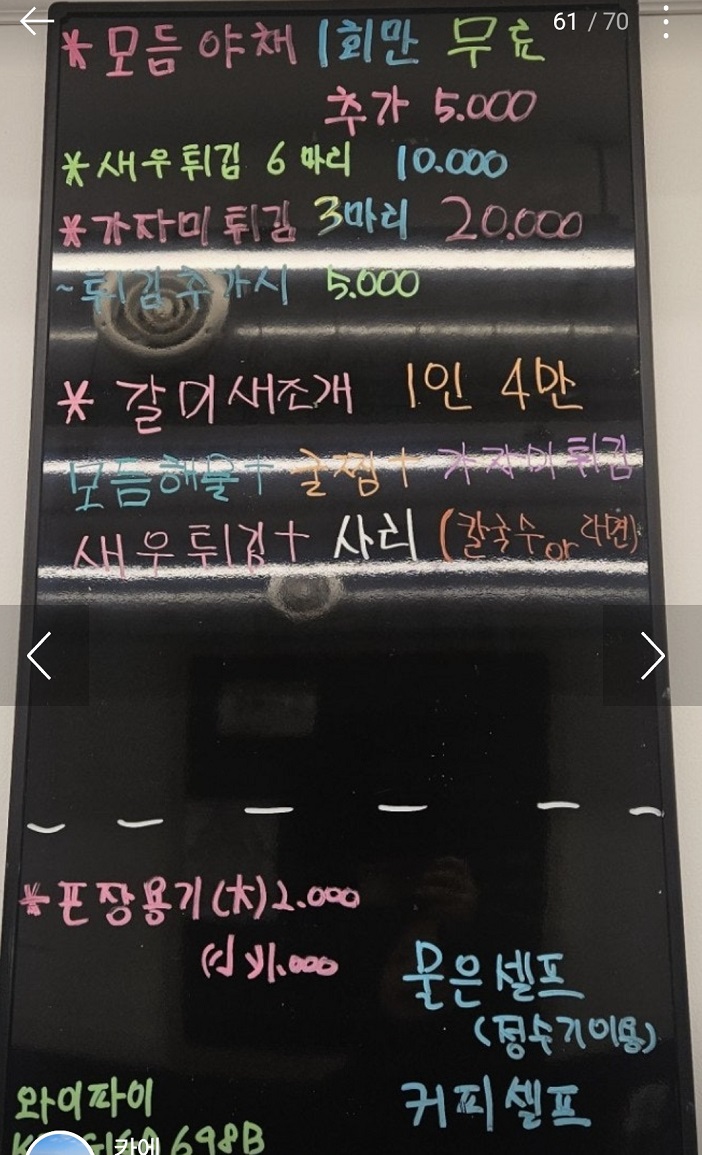 61 / 70
* 모듬 야채 1회만 무료
추가 5.000
* 새우튀김 6 마리 10.000
* 가자미 튀김 3마리 20.000
~ 튀김추가시 5.000
* 갈미새조개 1인 4만
모듬해물 + 굴찜 + 가자미튀김
새우튀김 + 사리 (칼국수 or 라면)
* 포장용기 (大) 2.000
(小) 1.000
물은 셀프
(정수기이용)
와이파이
커피 셀프
698B
카에